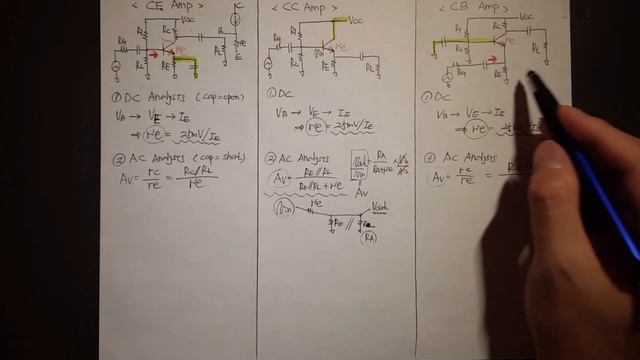 < CE Amp >
Vcc
R1
Rc
RG
re
R2
RE
RL
① DC Analysis (cap=open)
VB → VE → IE
⇒ re = 25mV/IE
② AC Analysis (cap=short)
Av = rc/re = Rc//RL/re
< CC Amp >
Vcc
R1
RG
re
Vin
R2
RE
RL
① DC
VB → VE → IE
⇒ re = 25mV/IE
② AC Analysis
Av = RE//RL/RE//RL + re
Vout/Vin = RA/RA+re
Av
Vin
re
Vout
RE //
RA
< CB Amp >
Vcc
R1
Rc
re
R2
RL
RG
RE
① DC
VB → VE → IE
⇒ re = 25mV/IE
② AC Analysis
Av = rc/re =